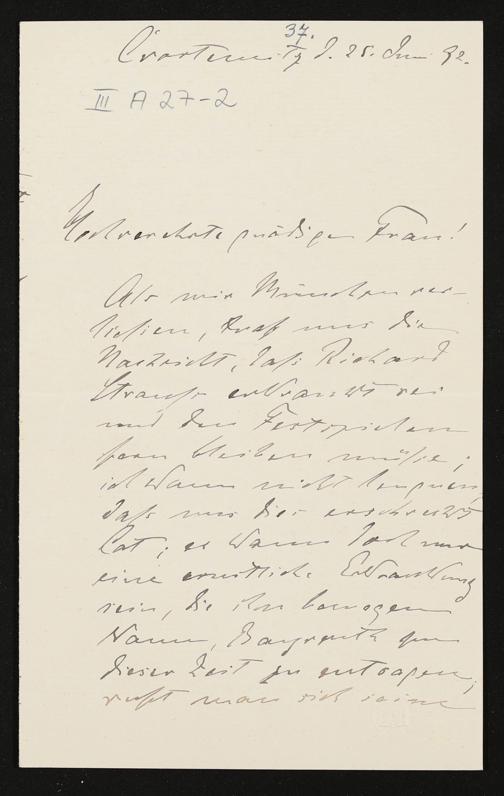 37.
Crostewitz d. 25. Juni 92.
III A 27-2
Hochverehrte gnädige Frau!
Als wir München ver-
ließen, traf uns die
Nachricht, daß Richard
Strauss erkrankt sei
und den Festspielen
fern bleiben müsse;
ich kann nicht leugnen,
daß uns dies erschreckt
hat; es kann doch nur
eine ernstliche Erkrankung
sein, die ihn bewogen
kann, Bayreuth zu
dieser Zeit zu entsagen,
ruft man sich seine